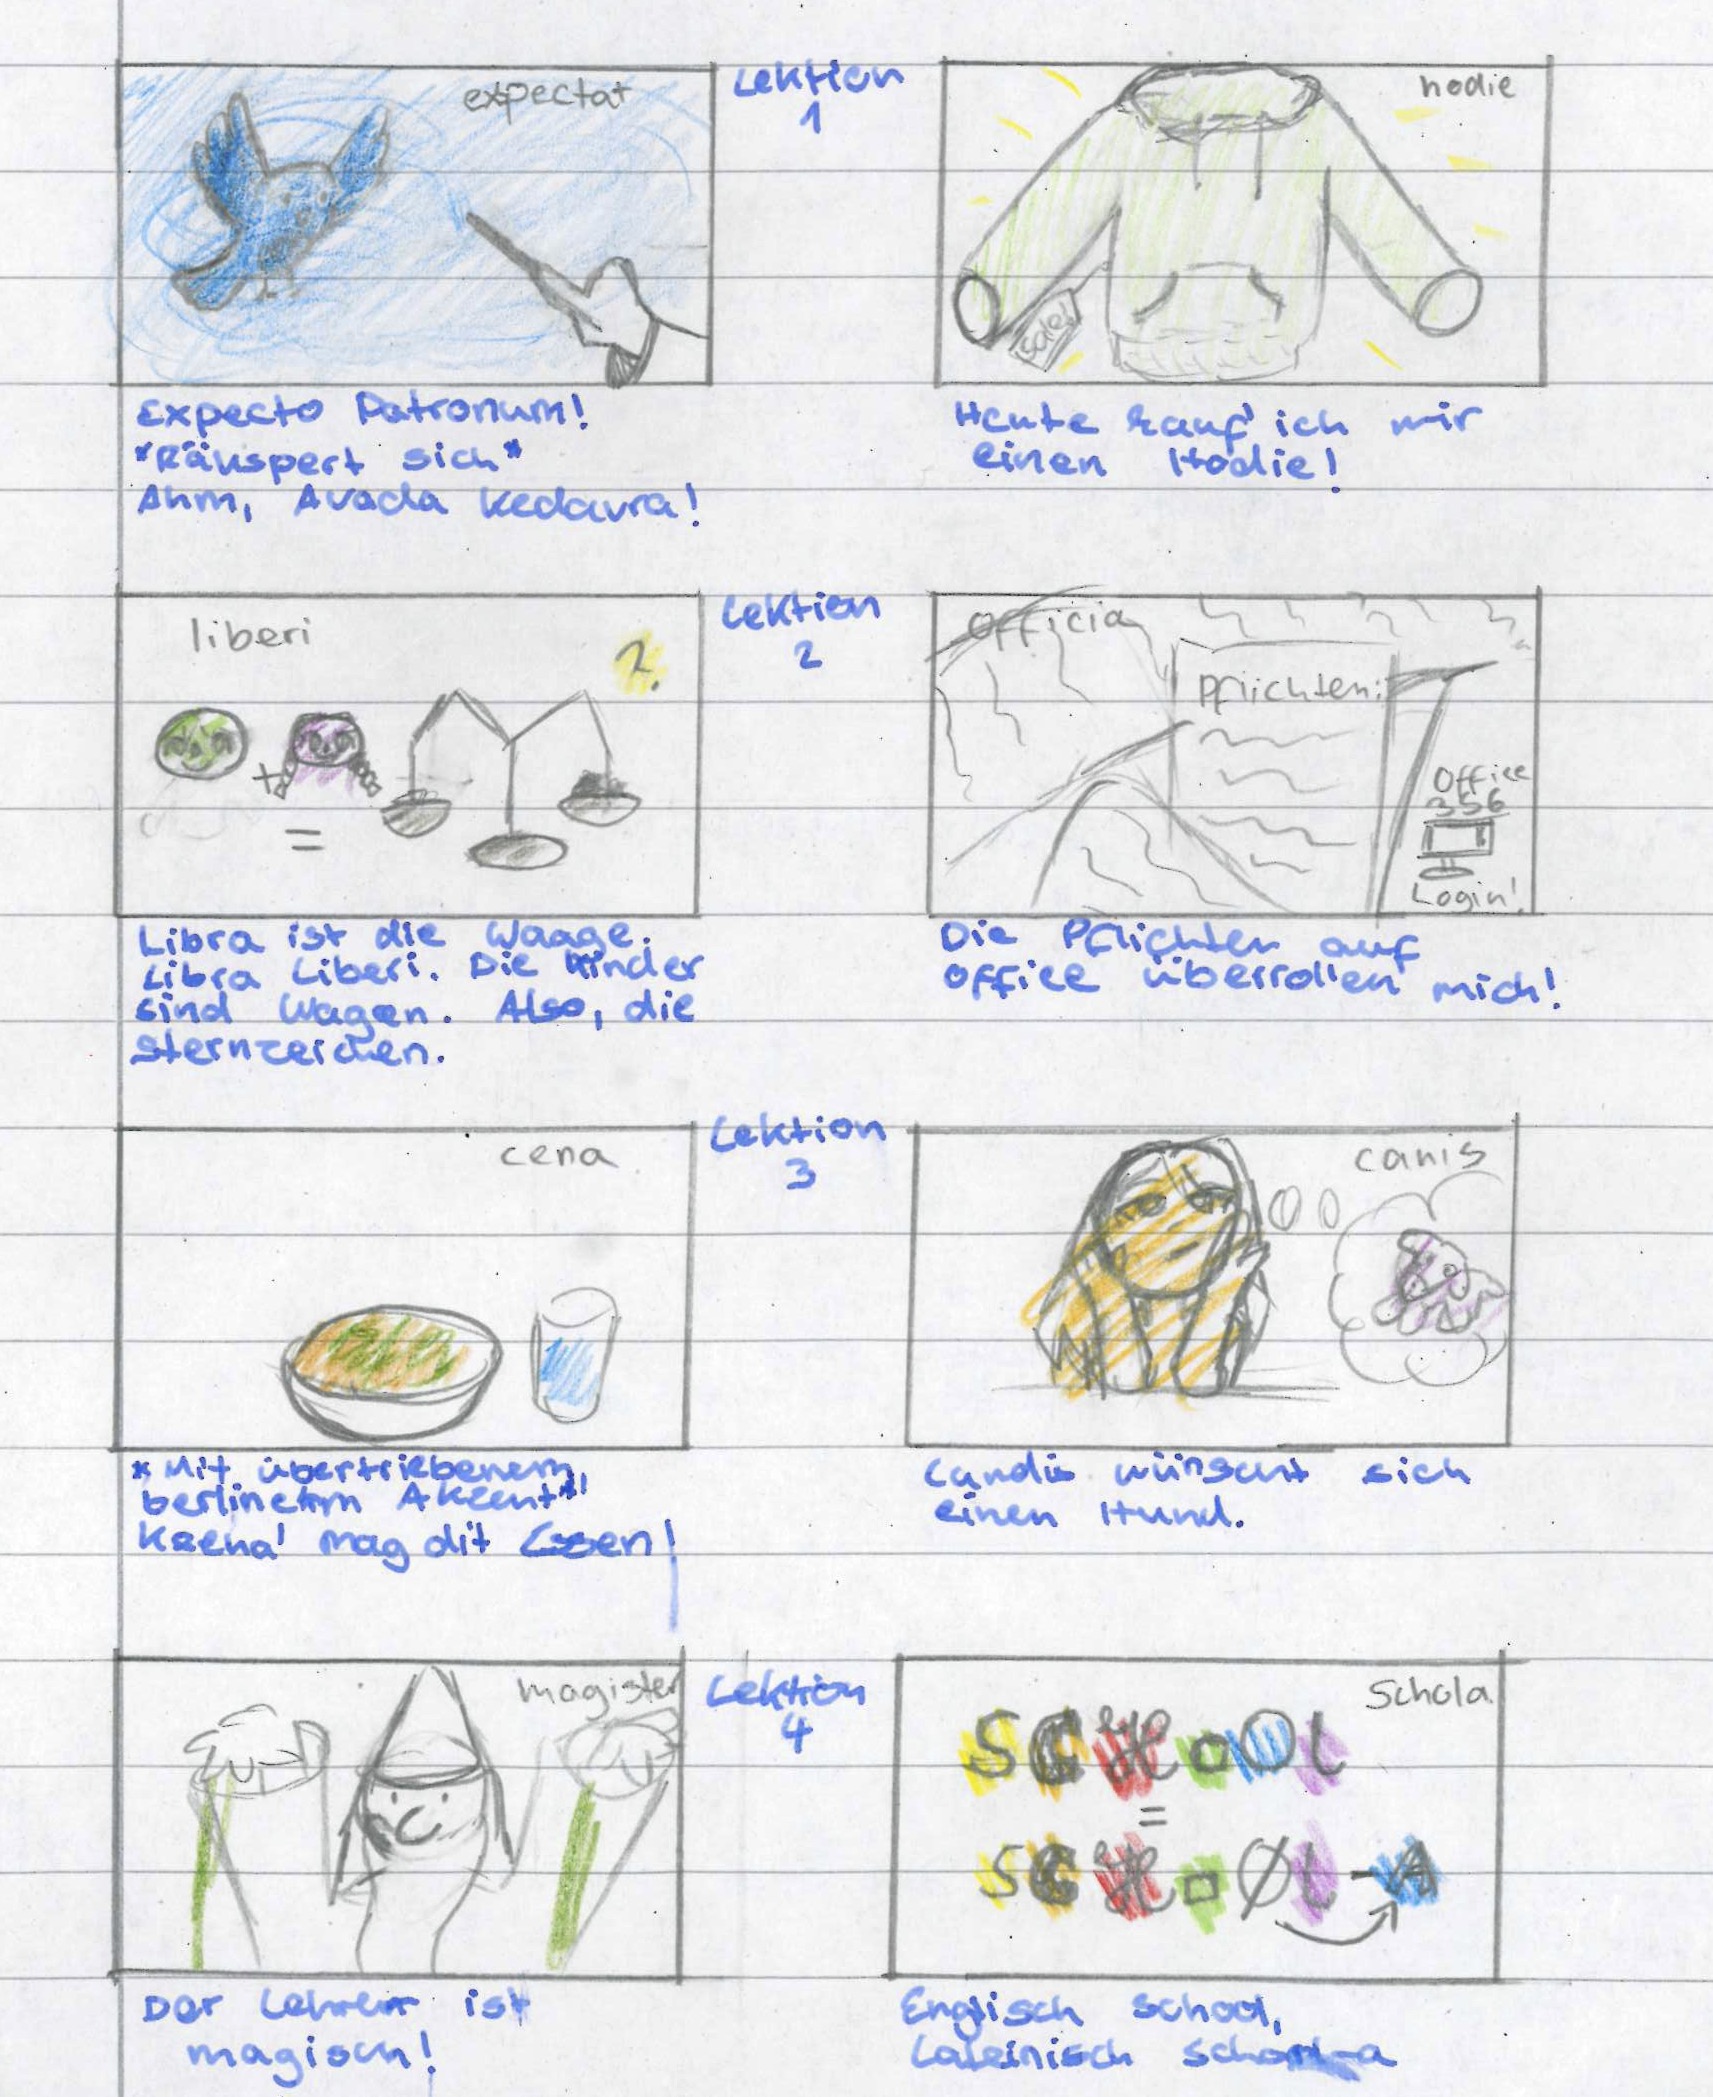 expectat
Lektion
1
hodie
Sale!
Expecto Patronum!
*Räuspert sich*
Ähm, Avada Kedavra!
Heute kauf' ich mir
einen Hodie!
liberi
2.
+
=
Lektion
2
officia
Pflichten:
Office
356
Login!
Libra ist die Waage.
Libra Liberi. Die Kinder
sind Wagen. Also, die
Sternzeichen.
Die Pflichten auf
Office überrollen mich!
cena
Lektion
3
canis
*Mit übertriebenem,
Akzent*
mag dit Essen!
wünscht sich
einen Hund.
magister
Lektion
4
Schola
SCHOOL
=
SCHOØL-A
Der Lehrer ist
magisch!
Englisch School,
Lateinisch